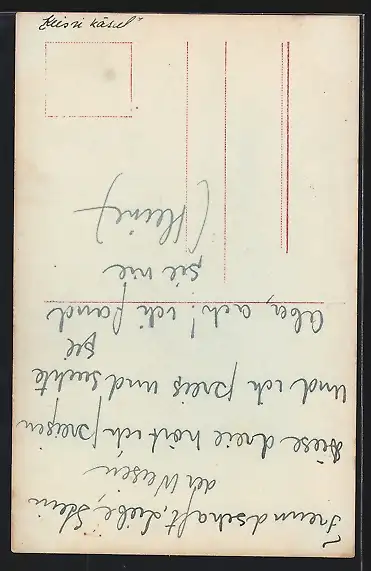 Freundschaft, Liebe, Stein
der Weisen
Diese dreie hört ich preisen
Und ich pries und suchte
sie
Aber, ach! ich fand
sie nie
(Heine)